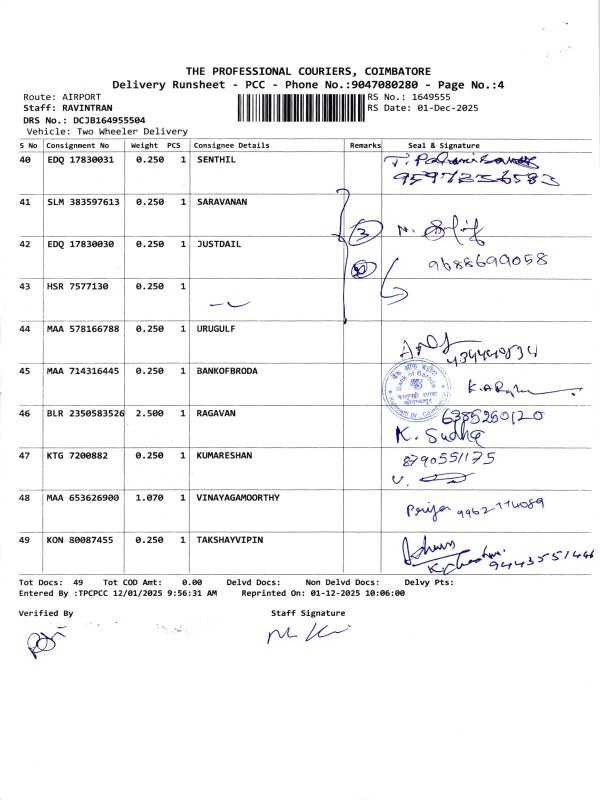 THE PROFESSIONAL COURIERS, COIMBATORE
Delivery Runsheet - PCC - Phone No.:9047080280 - Page No.:4
Route: AIRPORT RS No.: 1649555
Staff: RAVINTRAN RS Date: 01-Dec-2025
DRS No.: DCJB164955504
Vehicle: Two Wheeler Delivery
S No Consignment No Weight PCS Consignee Details Remarks Seal & Signature
40 EDQ 17830031 0.250 1 SENTHIL
9597236583
41 SLM 383597613 0.250 1 SARAVANAN
3
42 EDQ 17830030 0.250 1 JUSTDAIL
9688699058
43 HSR 7577130 0.250 1
44 MAA 578166788 0.250 1 URUGULF
45 MAA 714316445 0.250 1 BANKOFBRODA
Bank of Baroda
46 BLR 2350583526 2.500 1 RAGAVAN 6385250120
K. Sudha
47 KTG 7200882 0.250 1 KUMARESHAN 8790551175
48 MAA 653626900 1.070 1 VINAYAGAMOORTHY Priya 9962774089
49 KON 80087455 0.250 1 TAKSHAYVIPIN
9443551446
Tot Docs: 49 Tot COD Amt: 0.00 Delvd Docs: Non Delvd Docs: Delvy Pts:
Entered By :TPCPCC 12/01/2025 9:56:31 AM Reprinted On: 01-12-2025 10:06:00
Verified By Staff Signature